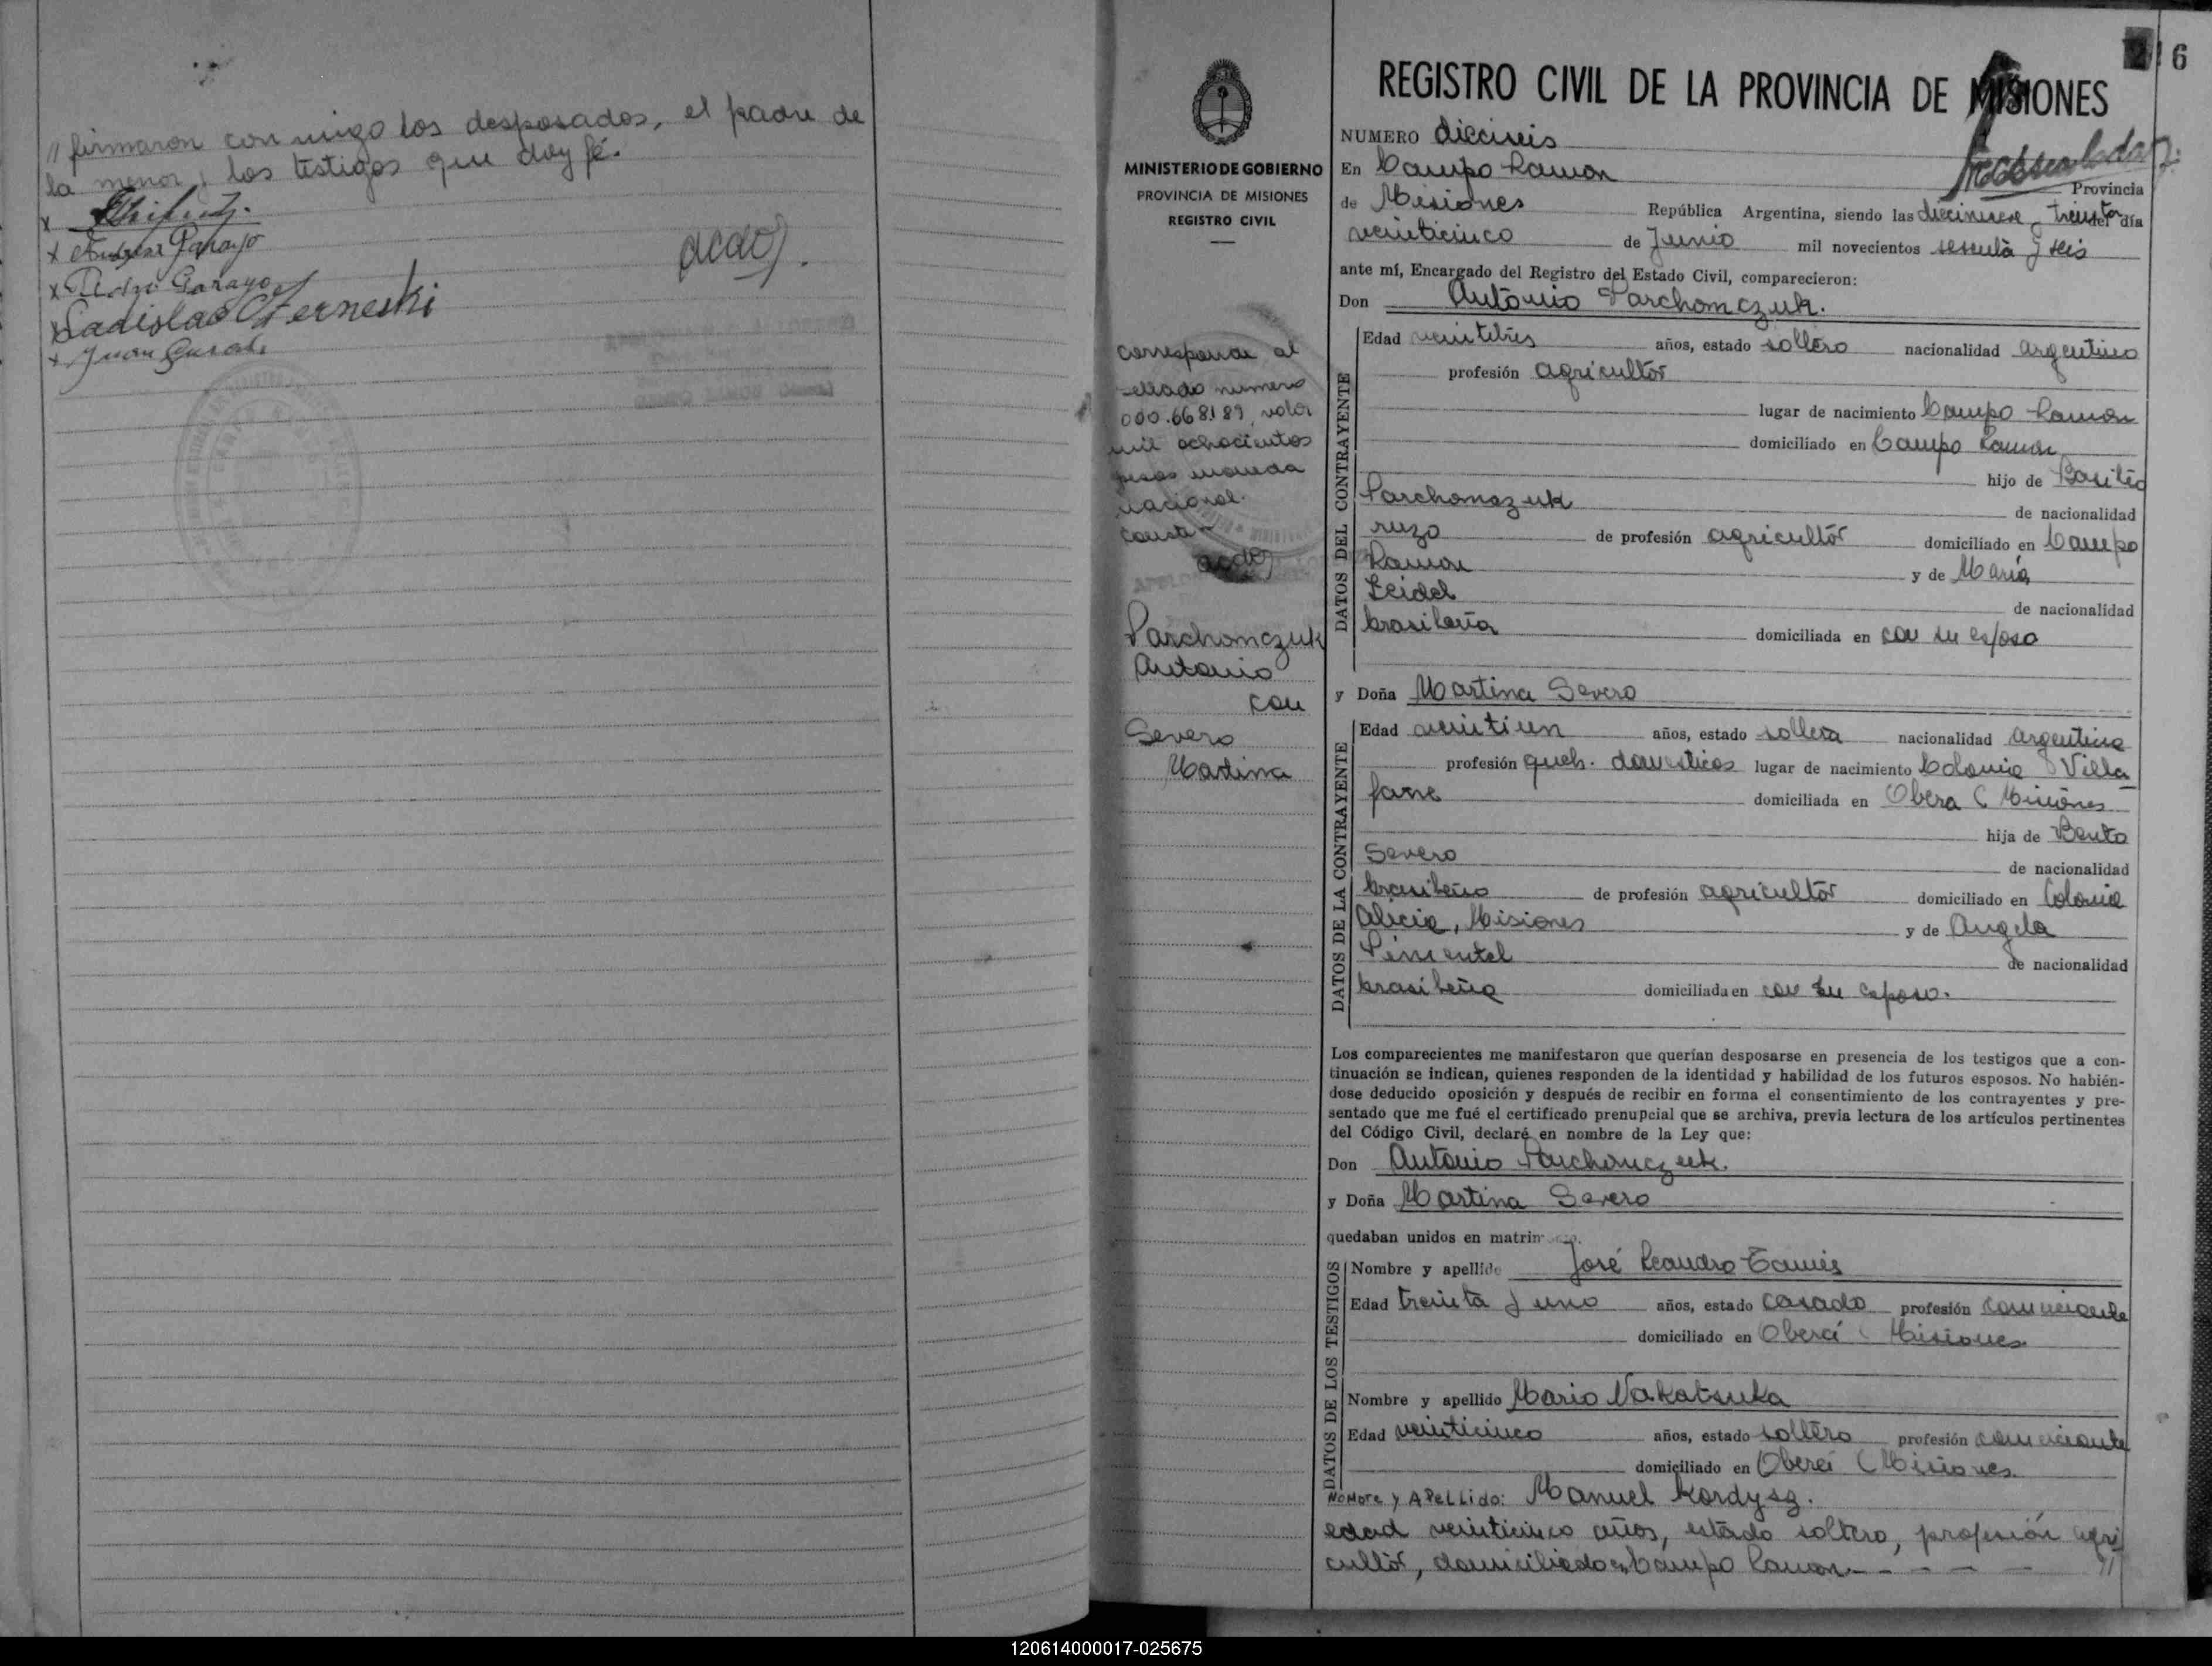 // firmaron conmigo los desposados, el padre de
la menor y los testigos que doy fé.
x
x Garayo
x Pedro Garayo
x Ladislao Czerneski
x Juan
MINISTERIO DE GOBIERNO
PROVINCIA DE MISIONES
REGISTRO CIVIL
corresponde al
sellado numero
000.668189, valor
mil ochocientos
pesos moneda
nacional.
Consta
Parchomczuk
Antonio
con
Severo
Martina
6
REGISTRO CIVIL DE LA PROVINCIA DE MISIONES
NUMERO dieciseis
En Campo Ramon Provincia
de Misiones República Argentina, siendo las diecinueve y treinta del día
veinticinco de Junio mil novecientos sesenta y seis
ante mí, Encargado del Registro del Estado Civil, comparecieron:
Don Antonio Parchomczuk.
DATOS DEL CONTRAYENTE
Edad veintitres años, estado soltero nacionalidad argentino
profesión agricultor
lugar de nacimiento Campo Ramon
domiciliado en Campo Ramon
hijo de Basilio
Parchomczuk de nacionalidad
ruzo de profesión agricultor domiciliado en Campo
Ramon y de María
Seidel de nacionalidad
brasileña domiciliada en con su esposo
y Doña Martina Severo
DATOS DE LA CONTRAYENTE
Edad veintiun años, estado soltera nacionalidad argentina
profesión queh. domesticos lugar de nacimiento Colonia Villa
fane domiciliada en Obera (Misiones
hija de Bento
Severo de nacionalidad
brasileño de profesión agricultor domiciliado en Colonia
Alicia, Misiones y de Angela
Pimentel de nacionalidad
brasileña domiciliada en con su esposo.
Los comparecientes me manifestaron que querían desposarse en presencia de los testigos que a con-
tinuación se indican, quienes responden de la identidad y habilidad de los futuros esposos. No habién-
dose deducido oposición y después de recibir en forma el consentimiento de los contrayentes y pre-
sentado que me fué el certificado prenupcial que se archiva, previa lectura de los artículos pertinentes
del Código Civil, declaré en nombre de la Ley que:
Don Antonio Parchomczuk.
y Doña Martina Severo
quedaban unidos en matrim
DATOS DE LOS TESTIGOS
Nombre y apellido José Leandro
Edad treinta y uno años, estado casado profesión comerciante
domiciliado en Oberá (Misiones
Nombre y apellido Mario Nakatsuka
Edad veinticinco años, estado soltero profesión comerciante
domiciliado en Oberá (Misiones
Nombre y APellido: Manuel Kordysz.
edad veinticinco años, estado soltero, profesión agri
cultor, domiciliado en Campo Ramon - - - - //
120614000017-025675